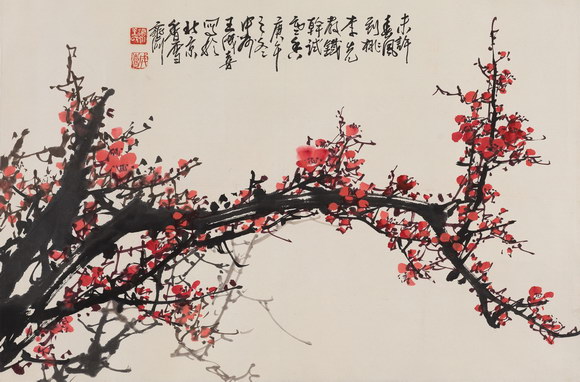 未許
春風
到桃
李先
教鐵
幹試
寒香
庚午
之冬
王成喜
寫於
北京
香雪
齋